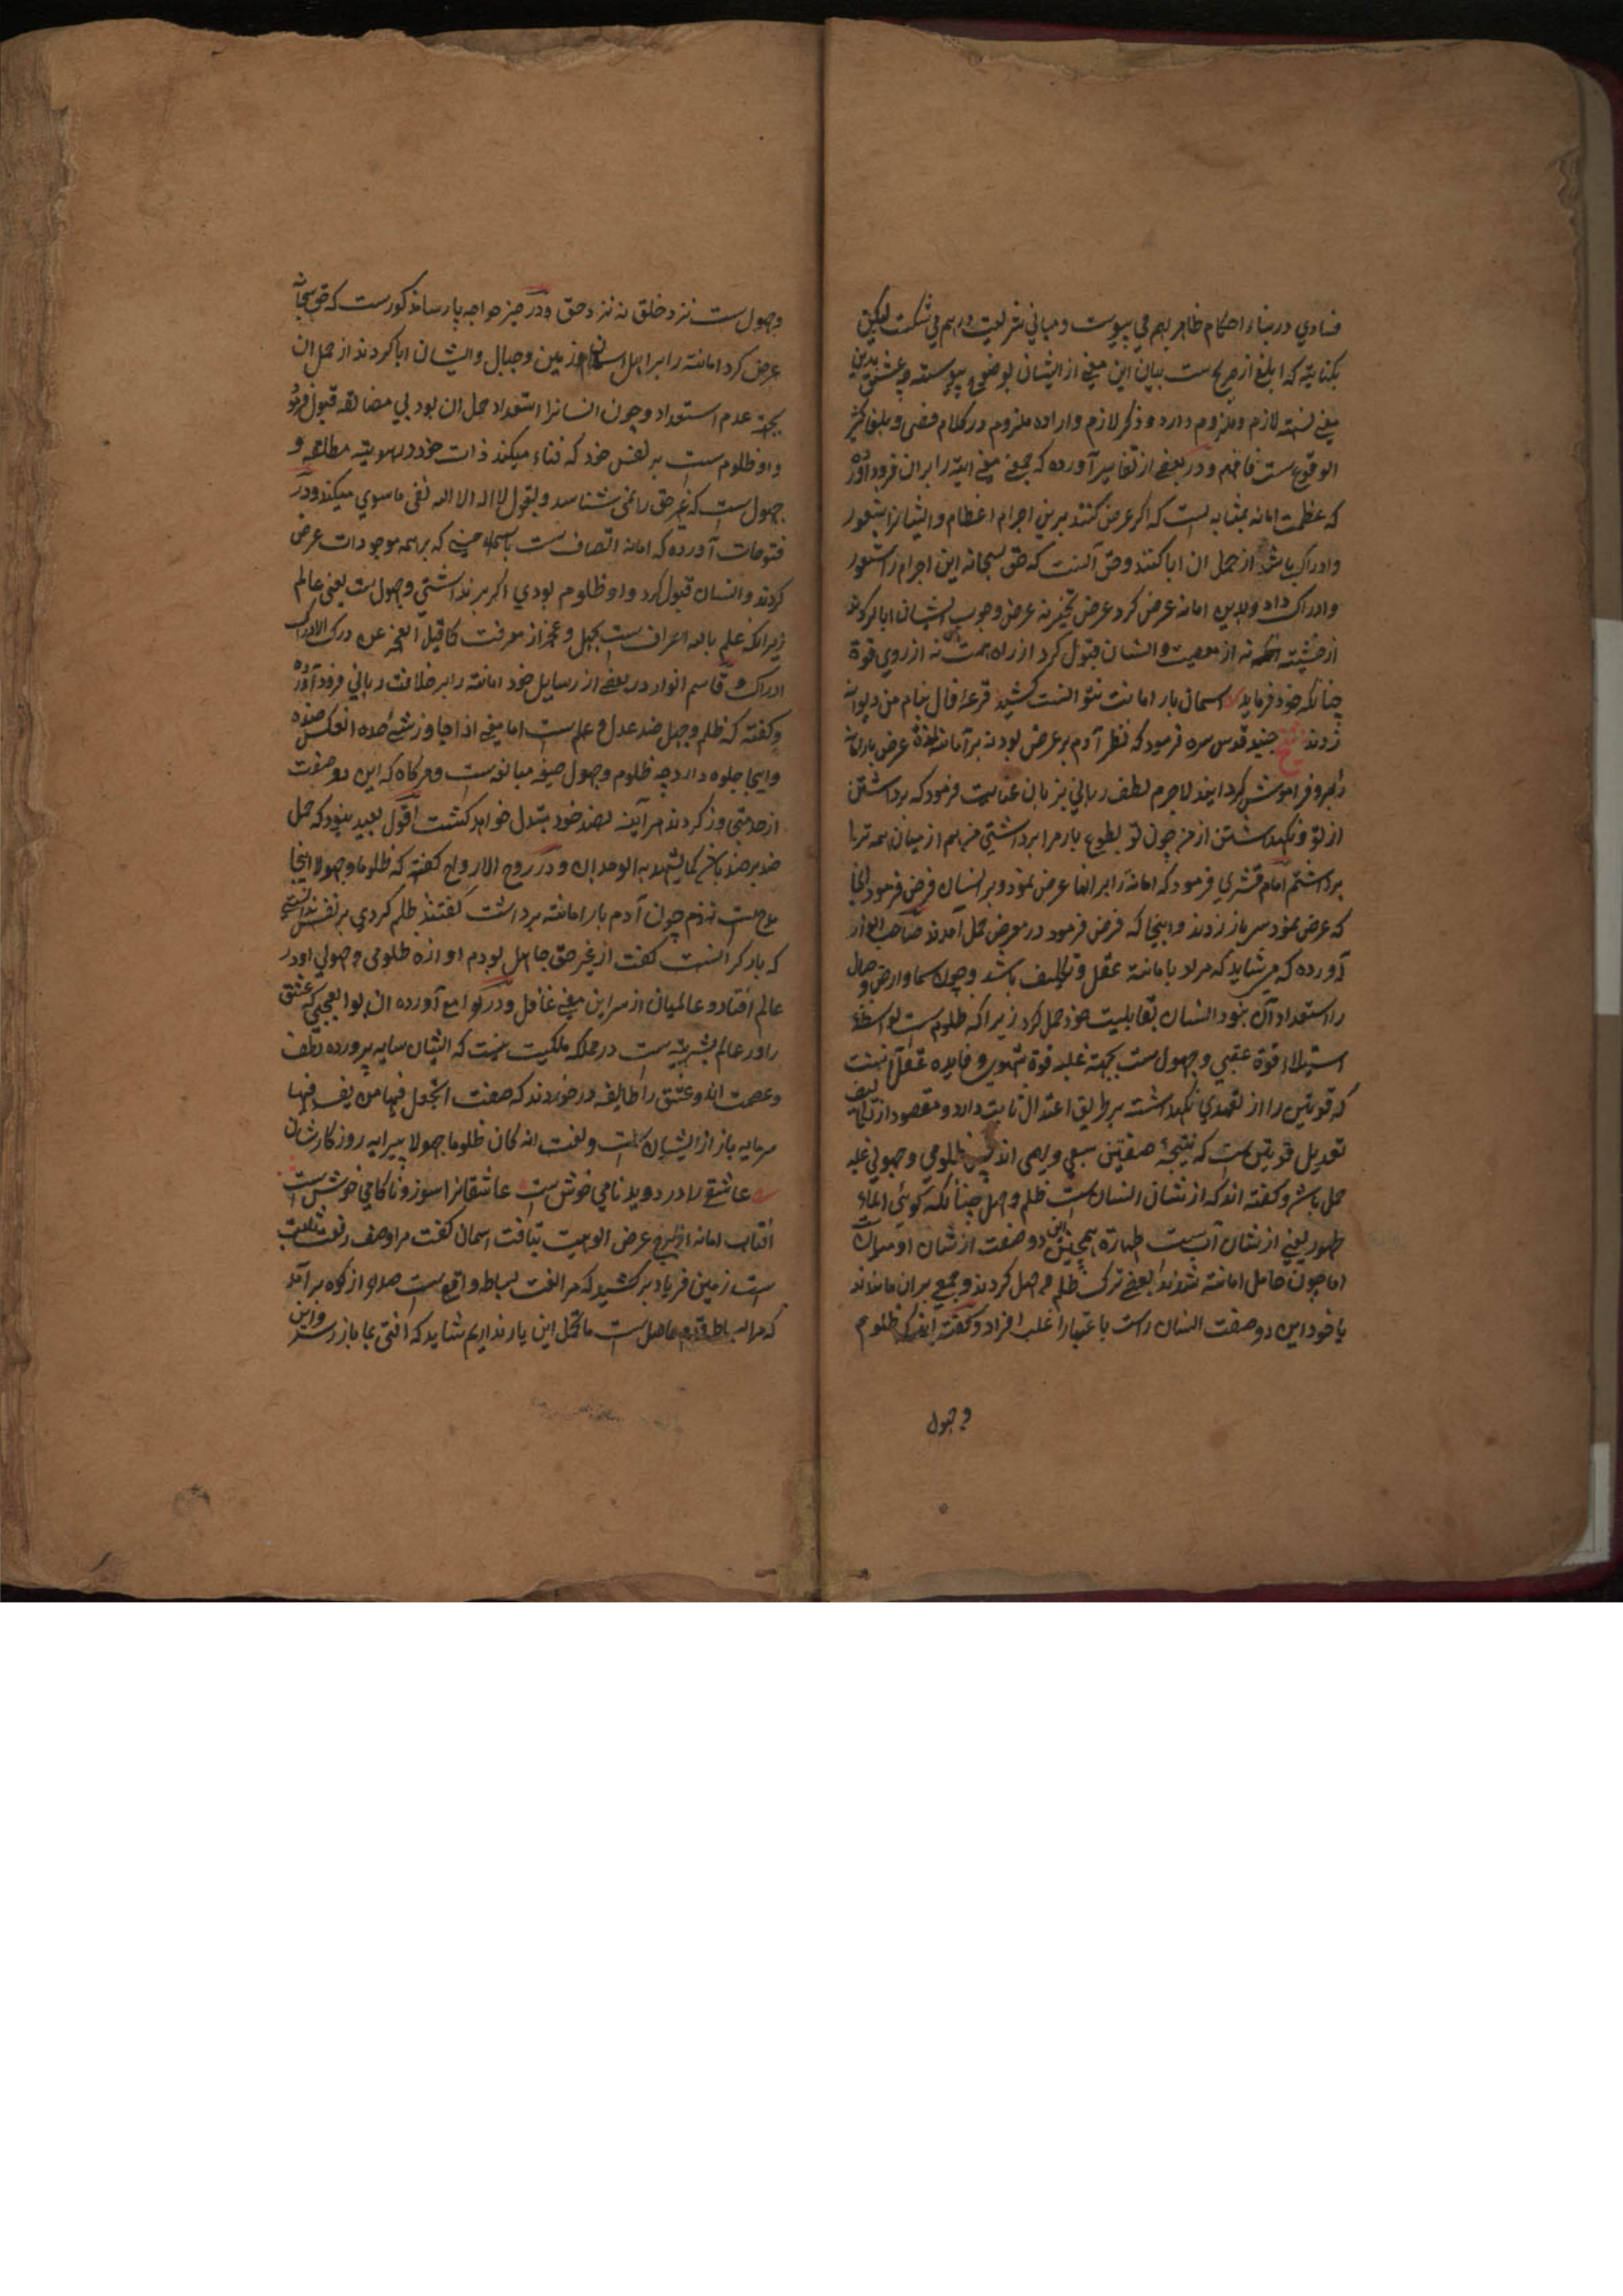 فسادي در بناء احكام ظاهر بهم مي پيوست و مباني شريعت درهم مي شكست ليكن
بكنايته كه ابلغ از صريح ست بيان اين معنى از ايشان بوضوح پيوسته و عشق بدين
معنى نسبته لازم و ملزوم دارد و ذكر لازم و اراده ملزوم در كلام فصحى و بلغا كثير
الوقوع ست فافهم و در بعضى از تفاسير آورده كه جمعى معنى ايته را بران فرود آورده
كه عظمت امانه بمثابه ايست كه اكر عرض كنند برين اجرام اعظام و ايشانرا شعور
وادراك باشد از حمل ان ابا كنند و حق آنست كه حق سبحانه اين اجرام را شعور
وادراك داد و بدين امانه عرض كرد عرض تخيير نه عرض وجوب ايشان ابا كردند
از خشيته نه از معصيت و انسان قبول كرد از راه همت نه از روي قوة
چنانكه خود فرمايد اسمان بار امانت نتوانست كشيد قرعۀ فال بنام من ديوانه
زدند شيخ جنيد قدس سره فرمود كه نظر آدم بر عرض بود نه بر امانته لذة عرض بار امانه
را برو فراموش كردانيد لاجرم لطف رباني بزبان عنايت فرمود كه برداشتن
از تو و نكهداشتن از من چون تو بطوع بار مرا برداشتي من هم از ميان همه ترا
برداشتم امام قشري فرمود كه امانة را بر انها عرض نمود و بر انسان فرض فرمود انجا
كه عرض نمود سر باز زدند و اينجا كه فرض فرمود در معرض حمل آمدند صاحب انوار
آورده كه مي شايد كه مراد بامانته عقل و تكليف باشد و چون سما و ارض و جبال
را استعداد آن نبود انسان بقابليت خود حمل كرد زيرا كه ظلوم ست بواسطۀ
استيلاء قوة غضبي و جهول ست بجهته غلبه قوة شهوي و فايده عقل آنست
كه قوتين را از تعدي نكهداشته بر طريق اعتدال ثابت دارد و مقصود از تكليف
تعديل قوتين ست كه نتيجۀ صفتين سبعي و بهيمي اند پس ظلومي و جهولي علة
حمل باشد و كفته اند كه از شان انسان ست ظلم و جهل چنانكه كوئي الماء
طهور يعني از شان آب ست طهارة همچنين اين دو صفت از شان او ميراث
اما چون حامل امانته شدند بعضى ترك ظلم و جهل كردند و جمعى بران ماندند
يا خود اين دو صفت انسان راست باعتبار اغلب افراد و كفته اند كه ظلوم
و جهول
وجهول ست نزد خلق نه نزد حق و در جيز خواجه پارسا مذكورست كه حق سبحانه
عرض كرد امانته را بر اهل اسمان و زمين و جبال و ايشان ابا كردند از حمل ان
بجهته عدم استعداد و چون انسانرا استعداد حمل ان بود بي مضائقه قبول فرمود
و او ظلوم ست بر نفس خود كه فناء ميكند ذات خود در هويته مطلقه و
جهول ست كه غير حق را نمى شناسد و بقول لا اله الا الله نفى ما سوي ميكند و در
فتوحات آورده كه امانه اتصاف ست باسماء حسنى كه بر همه موجودات عرض
كردند و انسان قبول كرد و او ظلوم بودي اكر بر نداشتي و جهول ست يعنى عالم
زيرا كه علم بالله اعراف ست بجهل و عجز از معرفت كما قيل العجز عن درك الادراك
ادراك و قاسم انوار در بعضى از رسايل خود امانته را بر خلافت رباني فرود آورده
و كفته كه ظلم و جهل ضد عدل و علم ست اما معنى اذا جاوز شئ حده انعكس ضده
و اينجا جلوه دارد چه ظلوم و جهول صيغه مبالغه ست و هركاه كه اين دو صفت
از حد تجاوز كردند هر آينه بضد خود مبتدل خواهد كشت اقول بعيد نبود كه حمل
ضد بر ضد باشد كما يشهد به الوجدان و در روح الارواح كفته كه ظلوما و جهولا اينجا
مدح ست نه ذم چون آدم بار امانته برداشت كفتند ظلم كردي بر نفس ندانستي
كه بار كرانست كفت از غير حق جاهل بودم اوازه ظلومي و جهولي او در
عالم افتاد و عالميان از سر اين معنى غافل و در لوامع آورده ان بوالعجبي كه عشق
را در عالم بشريته ست در مملكه ملكيت نيست كه ايشان سايه پرورده لطف
و عصمت اند و عشق را طايفه درخورند كه صفت اتجعل فيها من يفسد فيها
سرمايه باز ار ايشان ست و لغت انه كان ظلوما جهولا پيرايه روزكار شان
عاشقى را درد و بدنامي خوش ست عاشقانرا سوز و ناكامي خوش ست
آفتاب امانه از برج عرض الوهيت بتافت اسمان كفت مرا وصف رفعت ثابت
ست زمين فرياد بركشيد كه مرا لغت بساط واقع ست صدا از كوه بر آمد
كه مرا حاصل ست ما تحمل اين بار نداريم شايد كه افتى بما باز رسد و اين